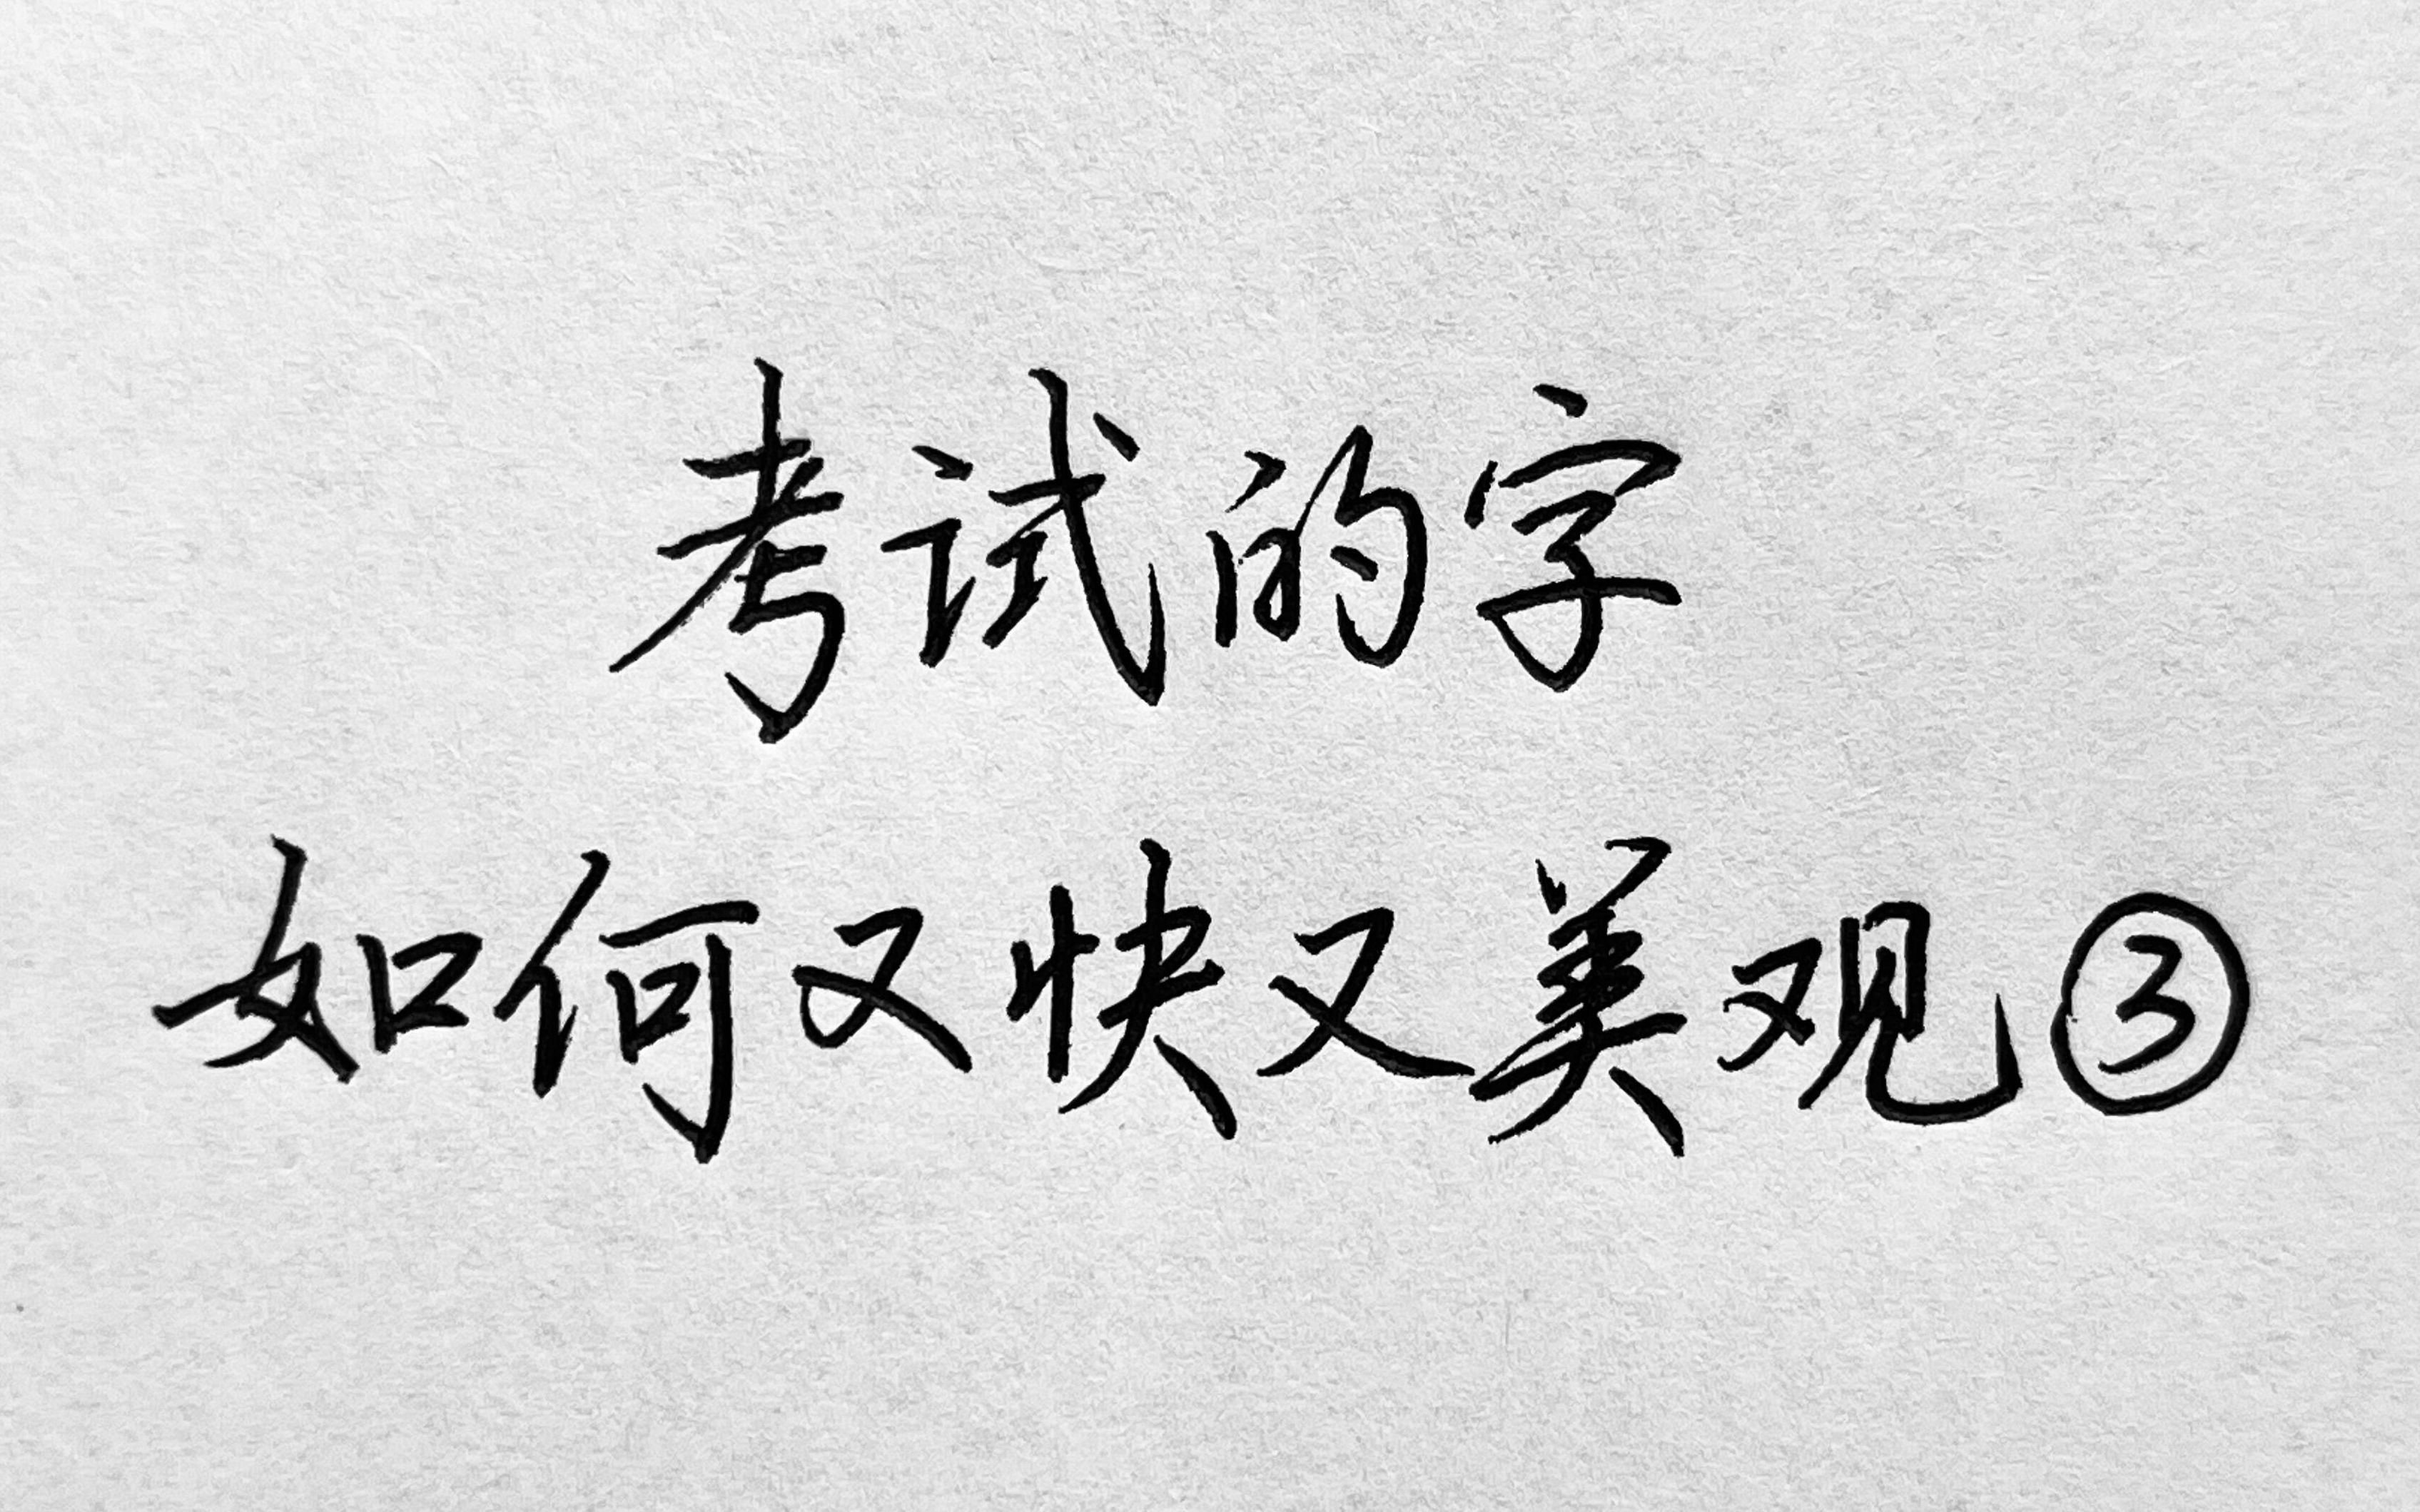 考试的字
如何又快又美观③